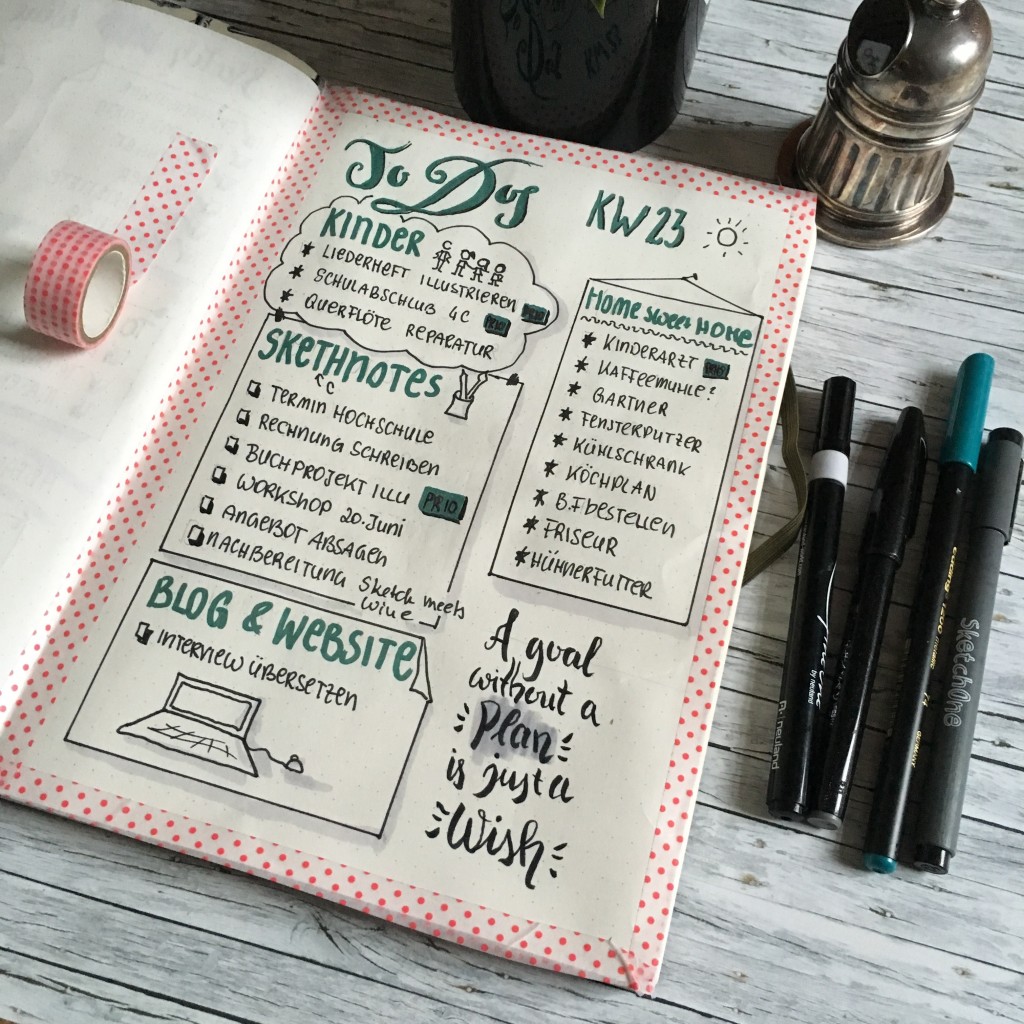 To Dos
KW 23
KINDER
* LIEDERHEFT ILLUSTRIEREN PRIO
* SCHULABSCHLUß 4C PRIO
* QUERFLÖTE REPARATUR
SKETHNOTES
C
TERMIN HOCHSCHULE
RECHNUNG SCHREIBEN
BUCHPROJEKT ILLU PRIO
WORKSHOP 20. Juni
ANGEBOT ABSAGEN
NACHBEREITUNG Sketch meets
Wine
BLOG & WEBSITE
INTERVIEW ÜBERSETZEN
Home sweet Home
* KINDERARZT
* KAFFEEMÜHLE?
* GÄRTNER
* FENSTERPUTZER
* KÜHLSCHRANK
* KOCHPLAN
* B.F bestellen
* FRISEUR
* HÜHNERFUTTER
A goal
without a
Plan
is just a
Wish
by neuland
neuland
SketchOne